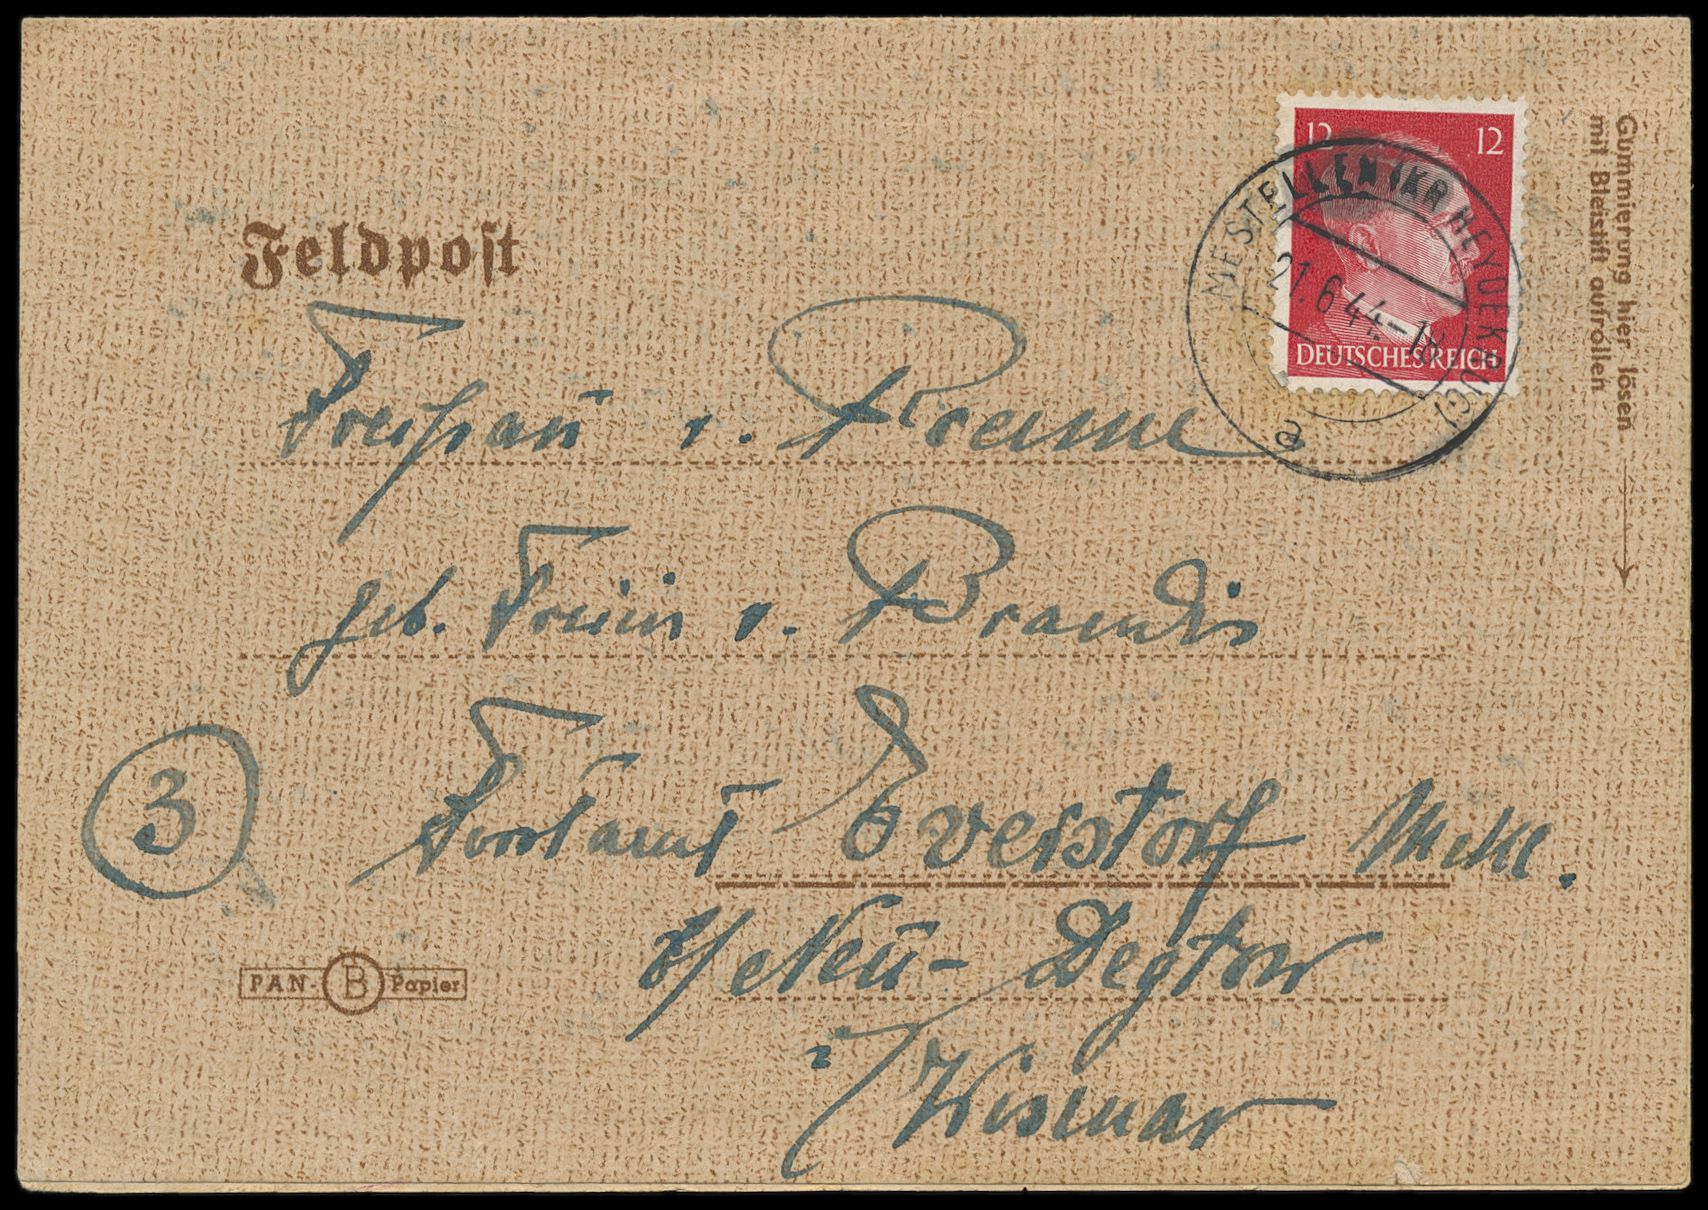 Feldpost
12 12
DEUTSCHES REICH
MESTELLEN (KR HEYDEKRUG)
21.6.44.-18
a
Gummierung hier lösen
mit Bleistift aufrollen
Freifrau v.
geb. Freiin v. Brandis
3
Forstamt Everstorf Meckl.
Neu-Degtow
i/ Wismar
PAN-B Papier